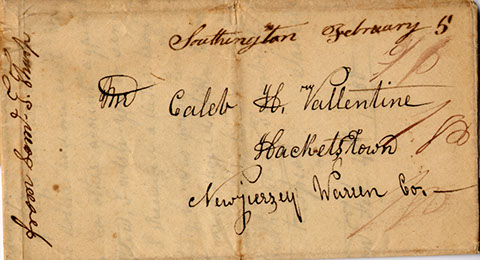 Southington February 5
Mr Caleb H. Vallentine
Hacketstown
Newjerzey Warren Co.